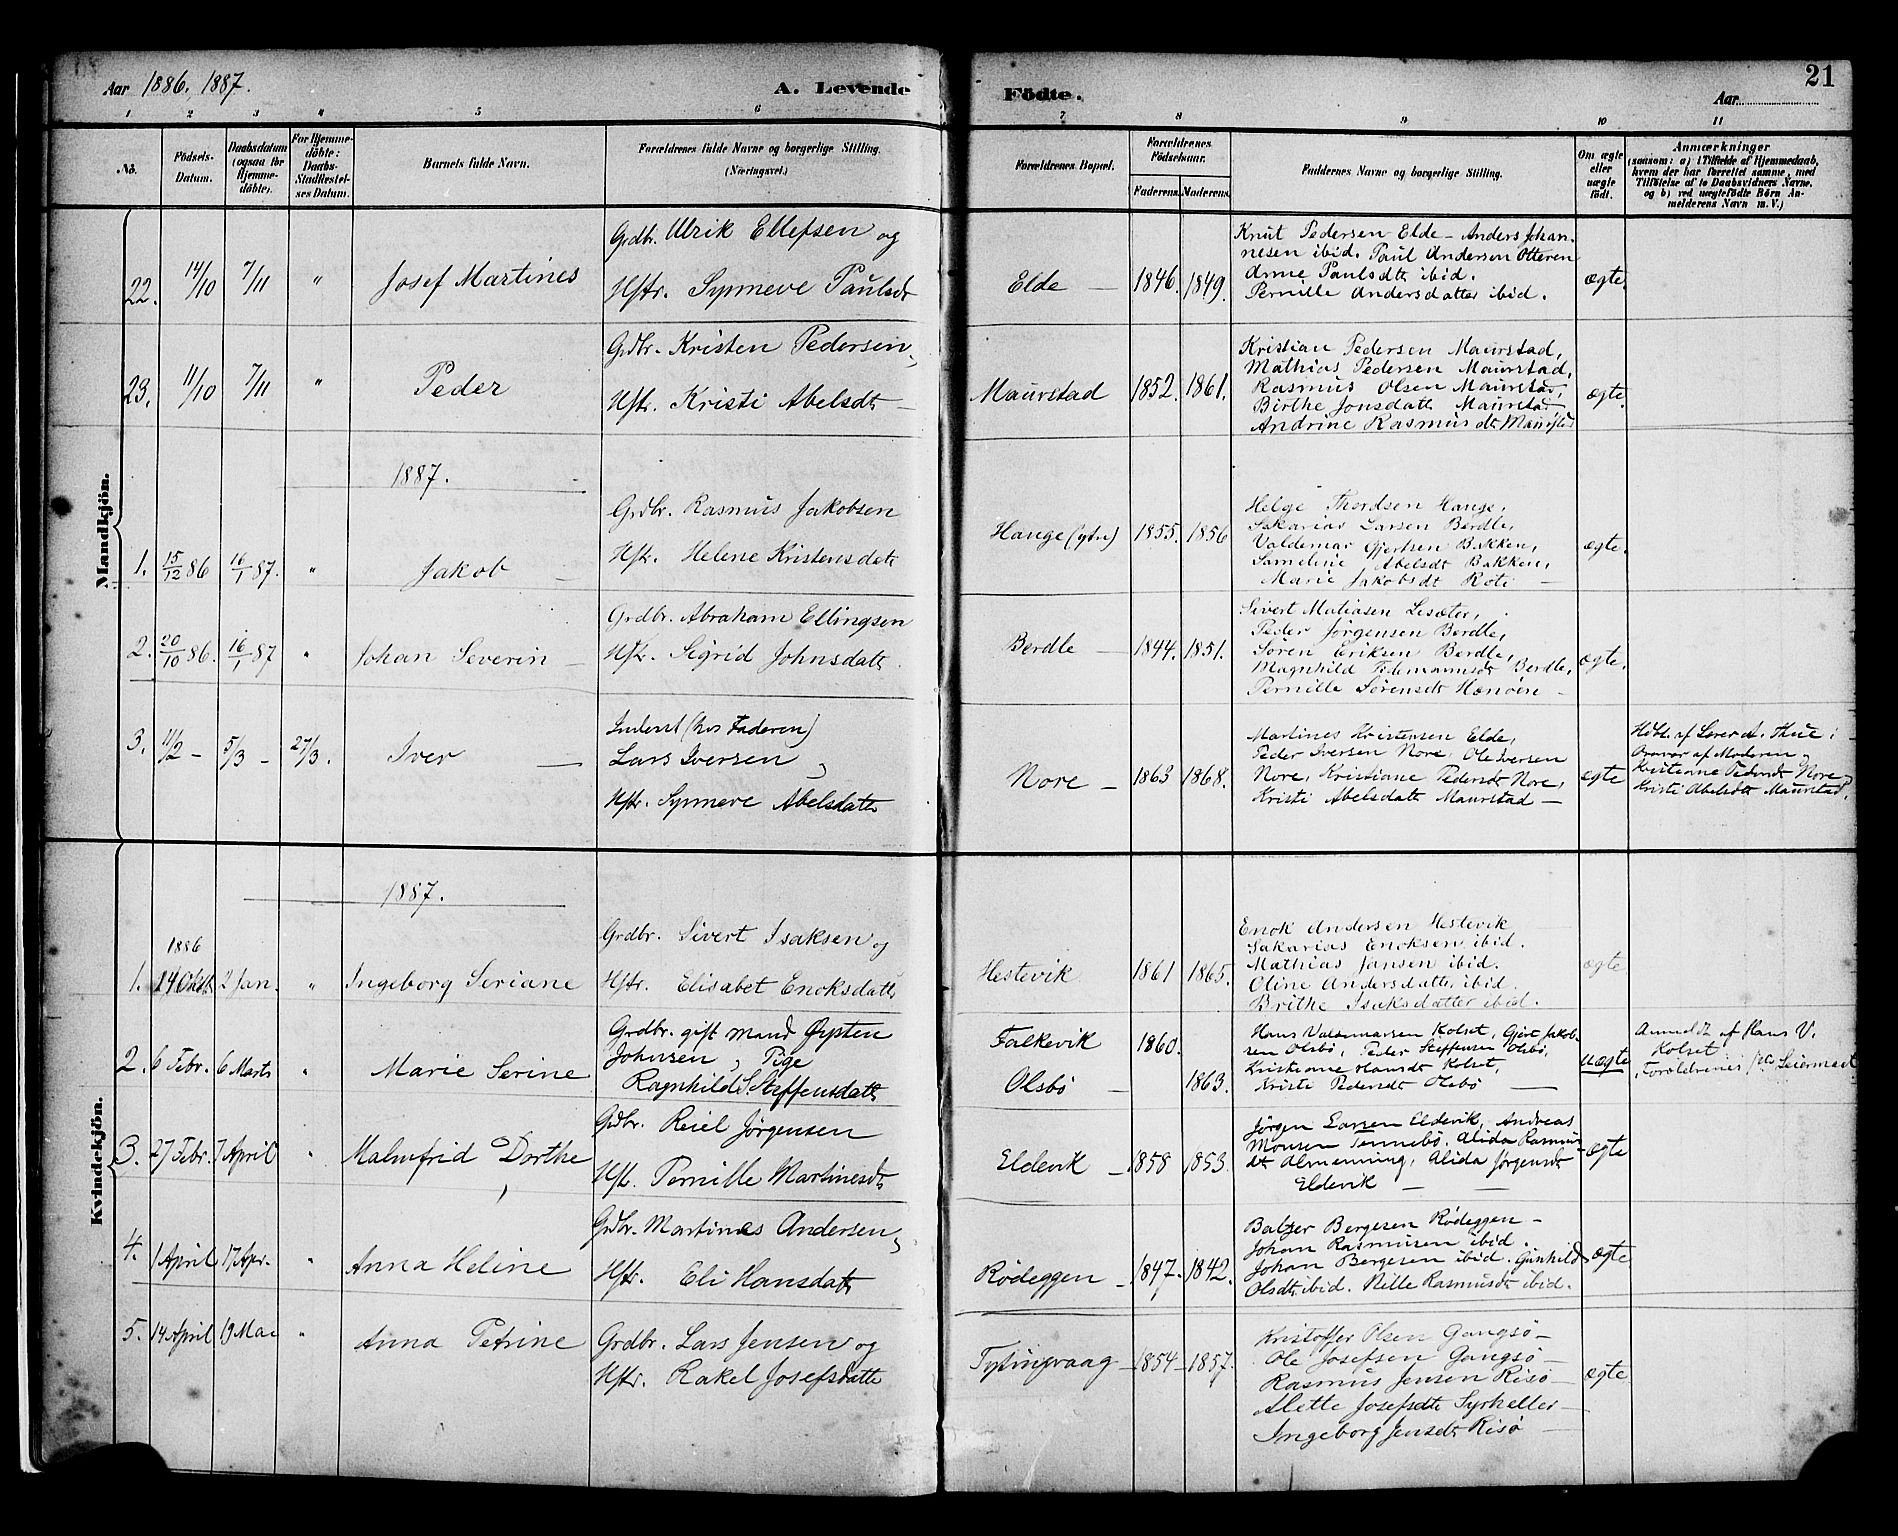 Aar 1886. 1887.
A. Levende Födte.
Aar
21
1 2 3 4 5 6 7 8 9 10 11
No.
Födsels-Datum.
Daabsdatum (ogsaa for Hjemme-döbte).
For Hjemme-döbte: Daabs-Stadfestel-ses Datum.
Barnets fulde Navn.
Forældrenes fulde Navne og borgerlige Stilling. (Næringsvei.)
Forældrenes Bopæl.
Forældrenes Födselsaar.
Faderens. Moderens.
Faddernes Navne og borgerlige Stilling.
Om ægte eller uægte födt.
Anmærkninger
(saasom: a) i Tilfælde af Hjemmedaab,
hvem der har forrettet samme, med
Tilföielse af to Daabsvidners Navne,
og b) ved uægtefödte Börn An-
melderens Navn m. V.)
Mandkjön.
22. 14/10 7/11 " Josef Martines
Grdbr. Ulrik Ellefsen og
Hstr. Synneve Paulsdt
Elde — 1846. 1849.
Knut Pedersen Elde - Anders Johan-
nesen ibid. Paul Andersen Otteren
Anne Paulsdtr ibid.
Pernille Andersdatter ibid.
ægte.
23. 11/10 7/11 " Peder
Grdbr. Kristen Pedersen,
Hstr. Kristi Abelsdtr —
Maurstad 1852. 1861.
Kristian Pedersen Maurstad,
Mathias Pedersen Maurstad,
Rasmus Olsen Maurstad,
Birthe Jonsdatt Maurstad
Andrine Rasmusdt Maurstad
ægte.
1887.
1. 15/12 86 16/1 87. " Jakob —
Grdbr. Rasmus Jakobsen
Hstr. Helene Kristensdatt
Hauge (ytre) 1855. 1856
Helge Thordsen Hauge,
Sakarias Larsen Berdle,
Valdemar Gjertsen Bakken,
Sameline Abelsdt Bakken,
Marie Jakobsdt Roti —
ægte.
2. 20/10 86. 16/1 87 " Johan Severin —
Grdbr. Abraham Ellingsen
Hstr. Sigrid Johnsdatt.
Berdle — 1844. 1851.
Sivert Matiasen Lesæter,
Peder Jørgensen Berdle,
Søren Eriksen Berdle,
Magnhild Berdle,
Pernille Sørensdt
ægte.
3. 11/2 - 5/3 - 27/3. Iver —
Inderst (hos Faderen)
Lars Iversen,
Hstr. Synneve Abelsdatt
Nore — 1863 1868.
Martines Kristensen Elde,
Peder Iversen Nore, Ole Iversen
Nore, Kristiane Pedersdt Nore,
Kristi Abelsdatt Maurstad —
ægte
Hdbt. af Lærer A. Thue i
af Moderen,
Kristiane Pedersdt Nore,
Kristi Abelsdt Maurstad.
Kvindekjön.
1887.
1. 1886 24 Oktb. 2 Jan. " Ingeborg Seriane
Grdbr. Sivert Isaksen og
Hstr. Elisabet Enoksdatt
Hestevik 1861 1865.
Enok Andersen Hestevik
Sakarias Enoksen ibid.
Mathias Jansen ibid.
Oline Andersdatter ibid.
Brithe Isaksdatter ibid.
ægte
2. 6 Febr. 6 Marts " Marie Serine
Grdbr. gift Mand Øysten
Johnsen, Pige
Ragnhild Steffensdatt
Falkevik 1860.
Olsbø — 1863.
Hans Valdemarsen Kolset, Gjert Jakob-
sen Olsbø, Peder Steffensen Olsbø,
Kristiane Hansdt Kolset,
Kristi Pedersdt Olsbø —
uægte
Anmeldt af Hans V.
Kolset
3. 27 Febr. 7 April " Malmfrid Dorthe
Grdbr. Reiel Jørgensen
Hstr. Pernille Martinesdt
Eldevik — 1858 1853.
Jørgen Larsen Eldevik, Andreas
Monsen Tennebø. Alida Rasmus-
dt Almenning, Alida Jørgensdt
Eldevik —
ægte
4. 1 April 17 Apr. " Anna Heline
Grdbr. Martines Andersen,
Hstr. Eli Hansdatt
Rødeggen — 1847. 1842.
Balzer Bergesen Rødeggen —
Johan Rasmusen ibid.
Johan Bergesen ibid. Gunhild
Olsdt ibid. Nille Rasmusdt ibid.
ægte
5. 14 April 19 Mai " Anna Petrine
Grdbr. Lars Jensen og
Hstr. Rakel Josefsdatte
Tytingvaag — 1854 - 1857.
Kristoffer Olsen Gangsø —
Ole Josefsen Gangsø —
Rasmus Jensen Risø —
Alette Josefsdt —
Ingeborg Jensdt Risø —
ægte